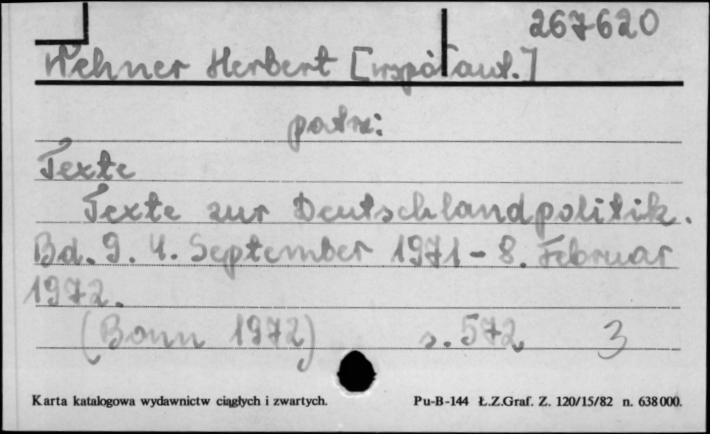 267620
Wehner Herbert [współaut.]
patrz:
Texte
Texte zur Deutschlandpolitik.
Bd. 9. 4. September 1971 - 8. Februar
1972.
(Bonn 1972) s. 572 3
Karta katalogowa wydawnictw ciągłych i zwartych. Pu-B-144 Ł.Z.Graf. Z. 120/15/82 n. 638000.